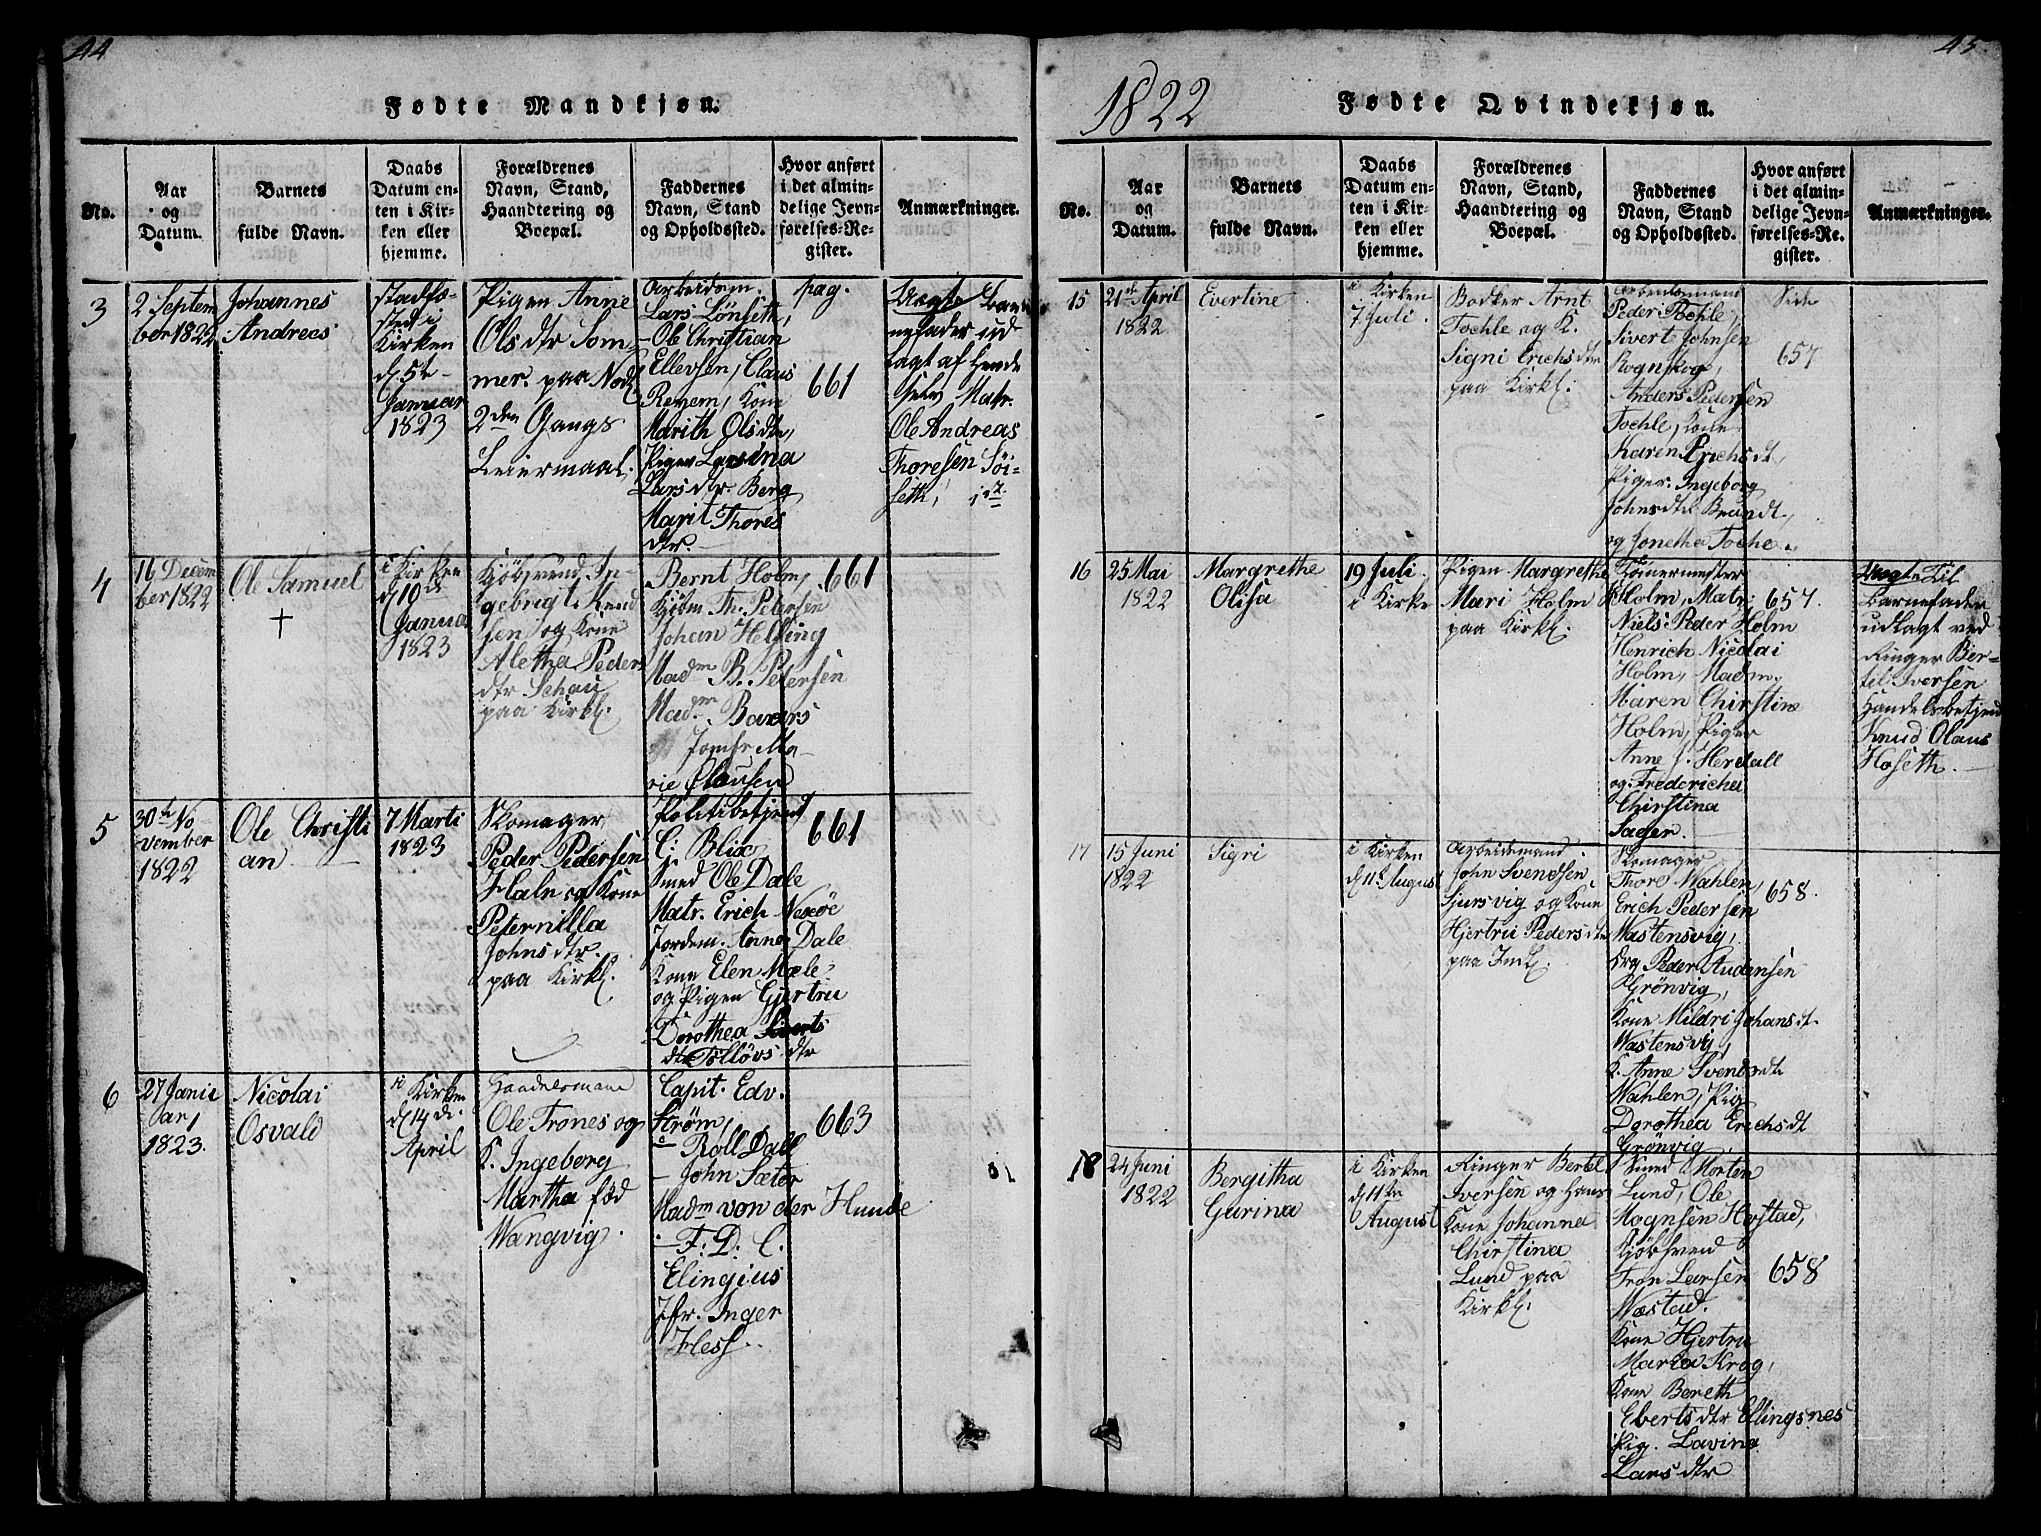 44
Fødte Mandkjøn.
No.
Aar
og
Datum.
Barnets
fulde Navn.
Daabs
Datum en-
ten i Kir-
ken eller
hjemme.
Forældrenes
Navn, Stand,
Haandtering og
Boepæl.
Faddernes
Navn, Stand
og Opholdssted.
Hvor anført
i det almin-
delige Jevn-
førelses-Re-
gister.
Anmærkninger.
3
2 Septem
ber 1822
Johannes
Andreas
stadfæ-
sted i
Kirken
d. 5te
Januar
1823
Pigen Anne
Olsdtr Som-
mer. paa Nodl
2den Gangs
Leiermaal.
Arbeidsm.
Lars Lönseth,
Ole Christian
Ellevsen, Claus
Remem, Kone
Marith Olsdtr,
Pigen Larsina
Larsdtr. Berg
Marit Thores
dtr.
pag.
661
Uægte Bar-
nefader ud
lagt af hende
selv Matr.
Ole Andreas
Thoresen Söi-
seth,
4
16 Decem
ber 1822
Ole Samuel
+
i Kirken
d 10d
Janua
1823
Kjöbsvend In-
gebrigt Knud
sen og Kone
Aletha Peders
dtr Schau
paa Kirkl.
Bernt Holm,
Kjöbm Th. Petersen
Johan Helsing
Madm B. Petersen
Madm Bavers
Jomfr. Ma-
rie Clausen
661
5
30te No
vember
1822
Ole Christi
an
7 Marti
1823
Skomager
Peder Pedersen
Haln og Kone
Peternilla
Johnsdtr.
paa Kirkl.
Politibetjent
C: Blix
Smed Ole Dale
Matr. Erich Nexöe
Jordem. Anne Dale
Kone Elen Mæle
og Pigen Gjertru
Dorothea
dtr Tollövsdtr
661
6
27 Janu
ar
1823.
Nicolai
Osvald
i Kirken
d 14 d.
April
Handelsmand
Ole Trones og
K. Ingeborg
Martha föd
Wangvig.
Capit. Edv.
Strøm,
- Roll Dall
- John Sæter
Madm von der Hunde
- F: D: C.
Elingius
Jfr. Inger
Hess.
663
45.
1822
Fødte Qvindekjøn.
No.
Aar
og
Datum.
Barnets
fulde Navn.
Daabs
Datum en-
ten i Kir-
ken eller
hjemme.
Forældrenes
Navn, Stand,
Haandtering og
Boepæl.
Faddernes
Navn, Stand
og Opholdssted.
Hvor anført
i det almin-
delige Jevn-
førelses-Re-
gister.
Anmærkninger.
15
21de April
1822
Evertine
i Kirken
7 Juli.
Bødker Arnt
Tochle og K.
Signi Erichsdtr
paa Kirkl:
Arbeidsmand
Peder Tochle,
Sivert Johnsen
Rognskog,
Anders Pedersen
Tochle, Kone
Karen Erichsdt,
Piger. Ingeborg
Johnsdtr Brandt,
og Jonetha Tochle.
Side
657
16
25 Mai
1822
Margrethe
Olisa
19 Juli
i Kirke
Pigen Margrethe
Mari Holm
paa Kirkl.
Tømermester
Holm, Matr:
Niels Peder Holm
Henrich Nicolai
Holm, Madm.
Maren Chirstine
Holm, Piger
Anne J. Herdall
og Fredericha
Chirstina
Sager.
657.
Uægte Til
Barnefader
udlagt ved
Ringer Ber-
til Iversen
Handelsbetjent
Knud Olaus
Hoseth.
17
15 Juni
1822
Sigri
i Kirken
d 11te August
Arbeidsmand
John Svendsen
Sjursvig og Kone
Hjertru Pedersdtr
paa Iml.
Skomager
Thore Wahlen,
Erich Pedersen
Wastensvig,
Drg Peder Andersen
Grönvig,
Kone Mildri Johansdt.
Wastensvig,
K. Anne Svendsdtr
Wahlen, Pig
Dorothea Erichsdt
Grönvig
658.
18
24 Juni
1822
Bergitha
Gurina
i Kirken
d 11te
August
Ringer Bertel
Iversen og Hans
Kone Johanna
Chirstina
Lund paa
Kirkl.
Smed Morten
Lund, Ole
Mognsen Herstad,
Kjöbsvend
Tron Larsen
Wæstad.
Kone Hjertru
Maria Krog,
Kone Bereth
Ebertsdtr Ellingsnes
Pig. Lavina
Larsdtr
658